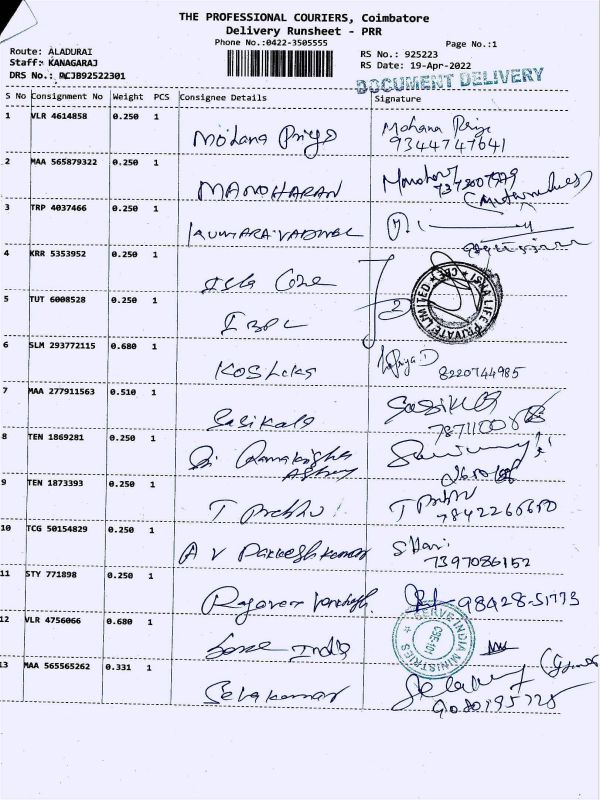 THE PROFESSIONAL COURIERS, Coimbatore
Delivery Runsheet - PRR
Phone No.:0422-3505555
Page No.:1
Route: ALADURAI
Staff: KANAGARAJ
DRS No.: RCJB92522301
RS No.: 925223
RS Date: 19-Apr-2022
DOCUMENT DELIVERY
S No Consignment No Weight PCS Consignee Details Signature
1 VLR 4614858 0.250 1
Mohana Priya Mohana Priya
9344747641
2 MAA 565879322 0.250 1
MANOHARAN
3 TRP 4037466 0.250 1
4 KRR 5353952 0.250 1
Isha Core
ISHA LIFE PRIVATE LIMITED CBE
5 TUT 6008528 0.250 1
6 SLM 293772115 0.680 1
8220744985
7 MAA 277911563 0.510 1
Sasikala
8 TEN 1869281 0.250 1
Sri Ramakrishna
9 TEN 1873393 0.250 1
T Prabhu T Prabhu
7842266650
10 TCG 50154829 0.250 1
A V
7397086152
11 STY 771898 0.250 1
98428-51773
12 VLR 4756066 0.680 1
Serve India
SERVE INDIA MINISTRIES CBE-101
13 MAA 565565262 0.331 1
Selvakumar